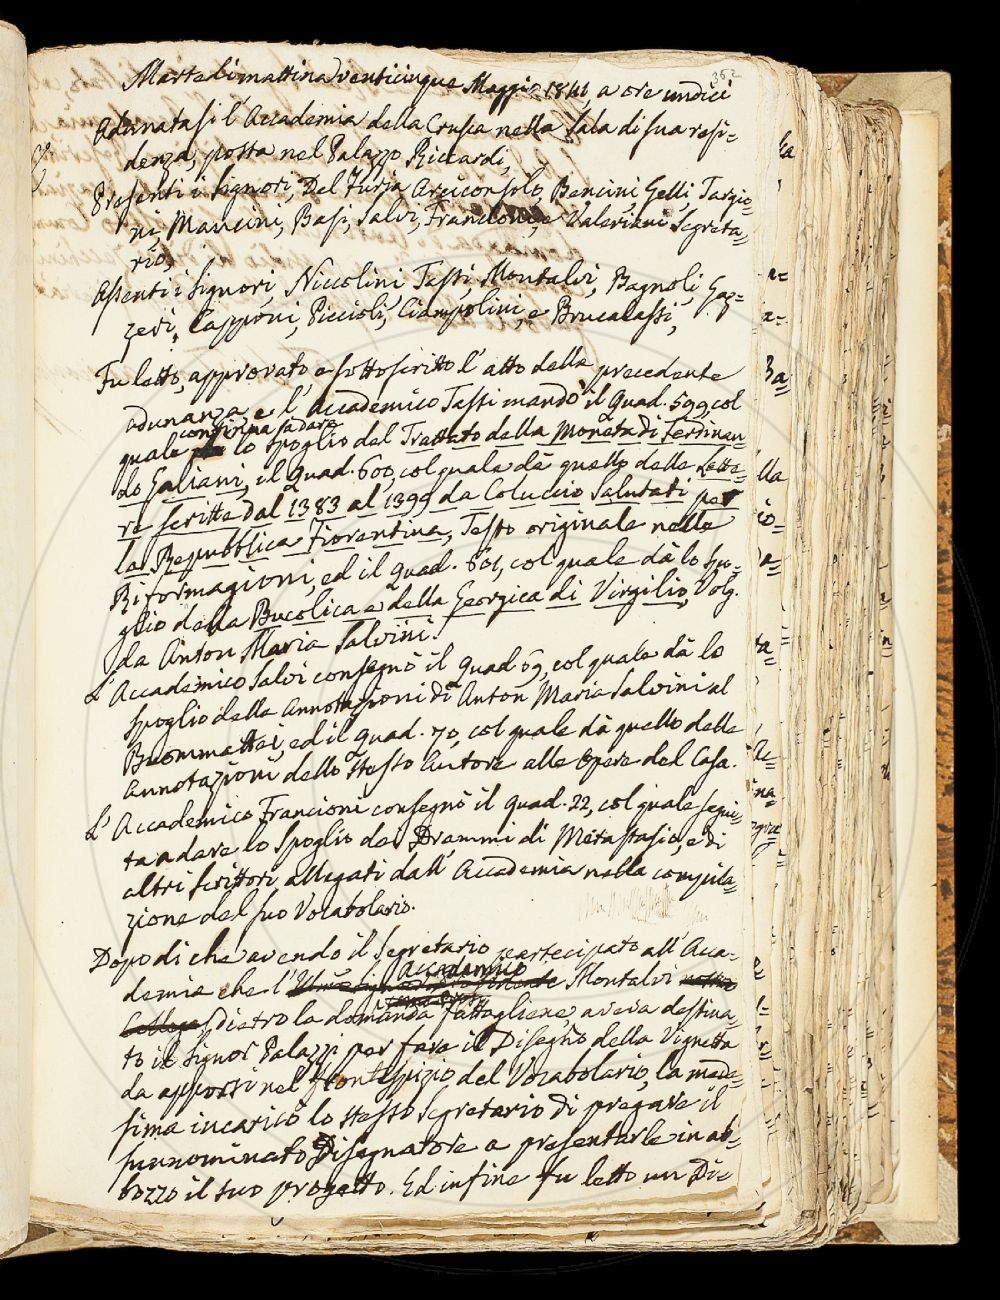 362
Martedì mattina venticinque Maggio 1841, a ore undici
Adunatasi l'Accademia della Crusca nella Sala di sua resi=
denza, posta nel Palazzo Riccardi,
Presenti i Signori, Del Furia Arciconsolo, Bencini, Gelli, Targio=
ni, Mancini, Basi, Salvi, Francioni, e Valeriani Segreta=
rio,
Assenti i Signori, Niccolini, Tassi, Montalvi, Bagnoli, Gaz=
zeri, Capponi, Piccioli, Ciampolini, e Brucalassi,
Fu letto, approvato e sottoscritto l'atto della precedente
adunanza, e l'Accademico Tassi mandò il Quad. 599, col
continua a dare
quale lo spoglio del Trattato della Moneta di Ferdinan=
do Galiani, il Quad. 600, col quale dà quello delle Lette=
re scritte dal 1383 al 1399 da Coluccio Salutati per
la Repubblica Fiorentina, Testo originale nelle
Riformagioni, ed il Quad. 601, col quale dà lo spo=
glio della Bucolica e della Georgica di Virgilio, Volg.
da Anton Maria Salvini.
L'Accademico Salvi consegnò il Quad. 69, col quale dà lo
spoglio delle Annotazioni di Anton Maria Salvini al
Buommattei, ed il Quad. 70, col quale dà quello delle
annotazioni dello stesso Autore alle Opere del Casa.
L'Accademico Francioni consegnò il Quad. 22, col quale segui=
ta a dare lo Spoglio dei Drammi di Metastasio, e di
altri scrittori allegati dall'Accademia nella compila=
zione del suo Vocabolario.
Dopo di che avendo il Segretario partecipato all'Acca=
Accademico
demia che l' Montalvi
dietro la domanda fattagliene, aveva destina=
to il Signor Palazzi per fare il Disegno della Vignetta
da apporsi nel frontespizio del Vocabolario, la mede=
sima incaricò lo stesso Segretario di pregare il
sunnominato Disegnatore a presentarle in ab=
bozzo il suo progetto. Ed infine fu letto un Di=